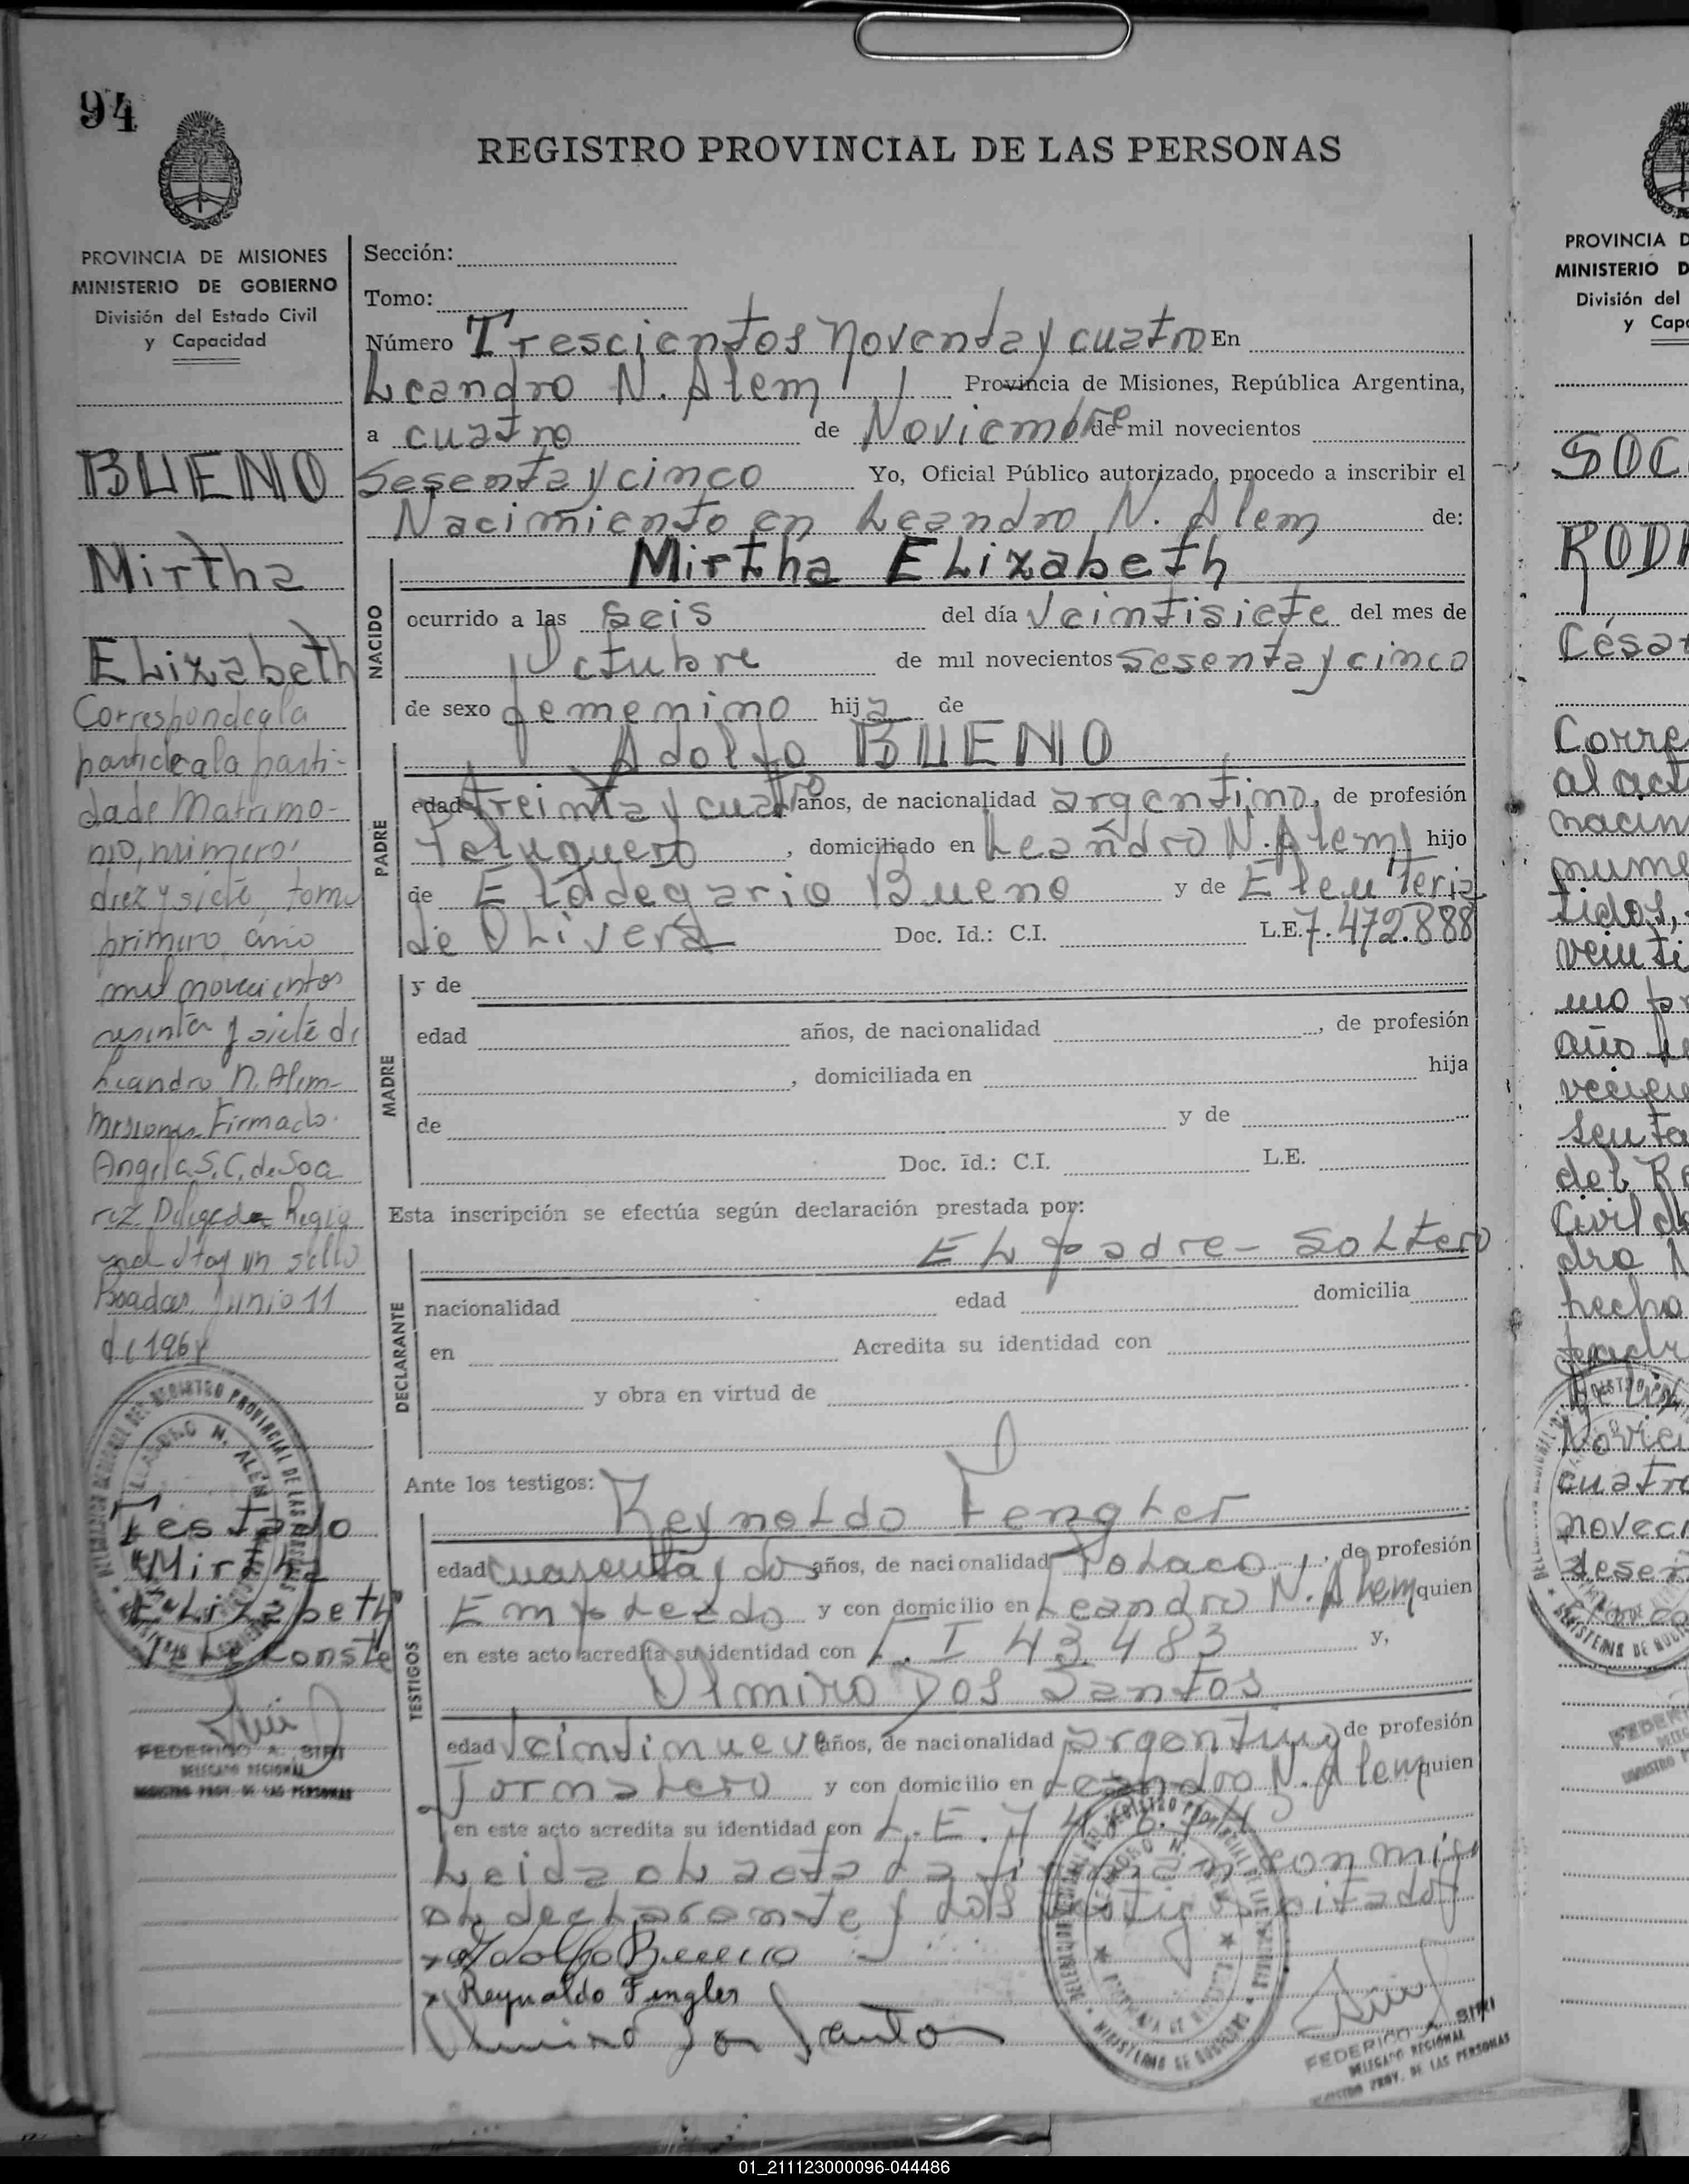 94
REGISTRO PROVINCIAL DE LAS PERSONAS
PROVINCIA DE MISIONES
MINISTERIO DE GOBIERNO
División del Estado Civil
y Capacidad
BUENO
Mirtha
Elizabeth
Corresponde a la
partida a la parti-
da de Matrimo-
nio, número
diez y siete, tomo
primero, año
mil novecientos
sesenta y siete de
Leandro N. Alem-
Misiones Firmado.
Angela S. C. de Soa
rez Delegada Regio
nal Hay un sello
Posadas, Junio 11
de 196
Testado
"Mirtha
Elizabeth"
Vale Conste
FEDERICO A. SIRI
DELEGADO REGIONAL
REGISTRO PROV. DE LAS PERSONAS
Sección:
Tomo:
Número Trescientos noventa y cuatro En
Leandro N. Alem Provincia de Misiones, República Argentina,
a cuatro de Noviembre de mil novecientos
Sesenta y cinco Yo, Oficial Público autorizado, procedo a inscribir el
Nacimiento en Leandro N. Alem de:
Mirtha Elizabeth
NACIDO
ocurrido a las seis del día veintisiete del mes de
Octubre de mil novecientos sesenta y cinco
de sexo femenino hija de
Adolfo BUENO
PADRE
edad treinta y cuatro años, de nacionalidad argentino, de profesión
Peluquero, domiciliado en Leandro N. Alem hijo
de Eladegario Bueno y de Eleuteria
de Olivera Doc. Id.: C.I. L.E. 7.472.888
MADRE
y de
edad años, de nacionalidad, de profesión
, domiciliada en hija
de y de
Doc. Id.: C.I. L.E.
Esta inscripción se efectúa según declaración prestada por:
El padre - Soltero
DECLARANTE
nacionalidad edad domicilia
en Acredita su identidad con
y obra en virtud de
Ante los testigos:
Reynoldo Fengler
TESTIGOS
edad cuarenta y dos años, de nacionalidad Polaco, de profesión
Empleado y con domicilio en Leandro N. Alem quien
en este acto acredita su identidad con C. I 43.483 y,
Olmiro Dos Santos
edad veintinueve años, de nacionalidad argentino de profesión
Jornalero y con domicilio en Leandro N. Alem quien
en este acto acredita su identidad con L.E. 7
Leida el acta la firman con mi
el declarante y los testigos citados
Adolfo Bueno
Reynaldo Fengler
Olmiro Dos Santos
FEDERICO A. SIRI
DELEGADO REGIONAL
REGISTRO PROV. DE LAS PERSONAS
01_211123000096-044486